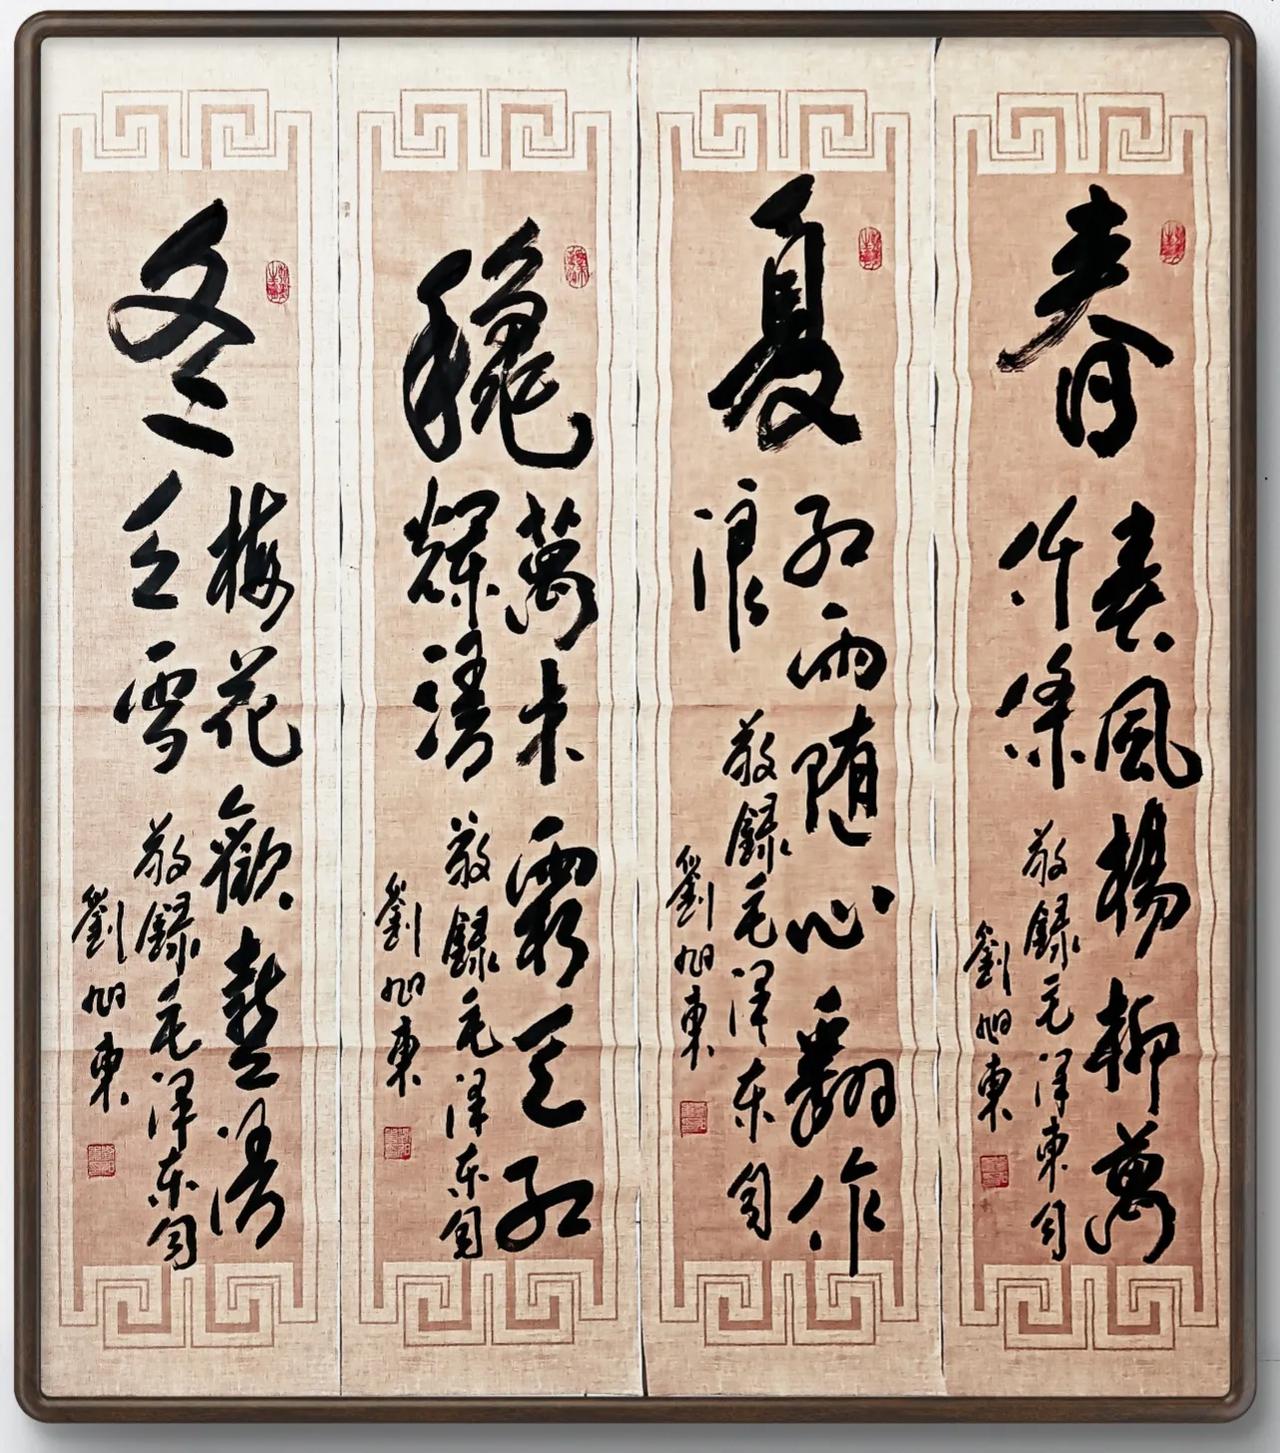 春
春風楊柳萬
仟條
敬録毛澤東句
劉旭東
夏
红雨随心翻作
浪
敬録毛泽东句
劉旭東
龝
萬木霜天红
爛漫
敬録毛泽东句
劉旭東
冬
梅花歡喜漫
天雪
敬録毛泽东句
劉旭東